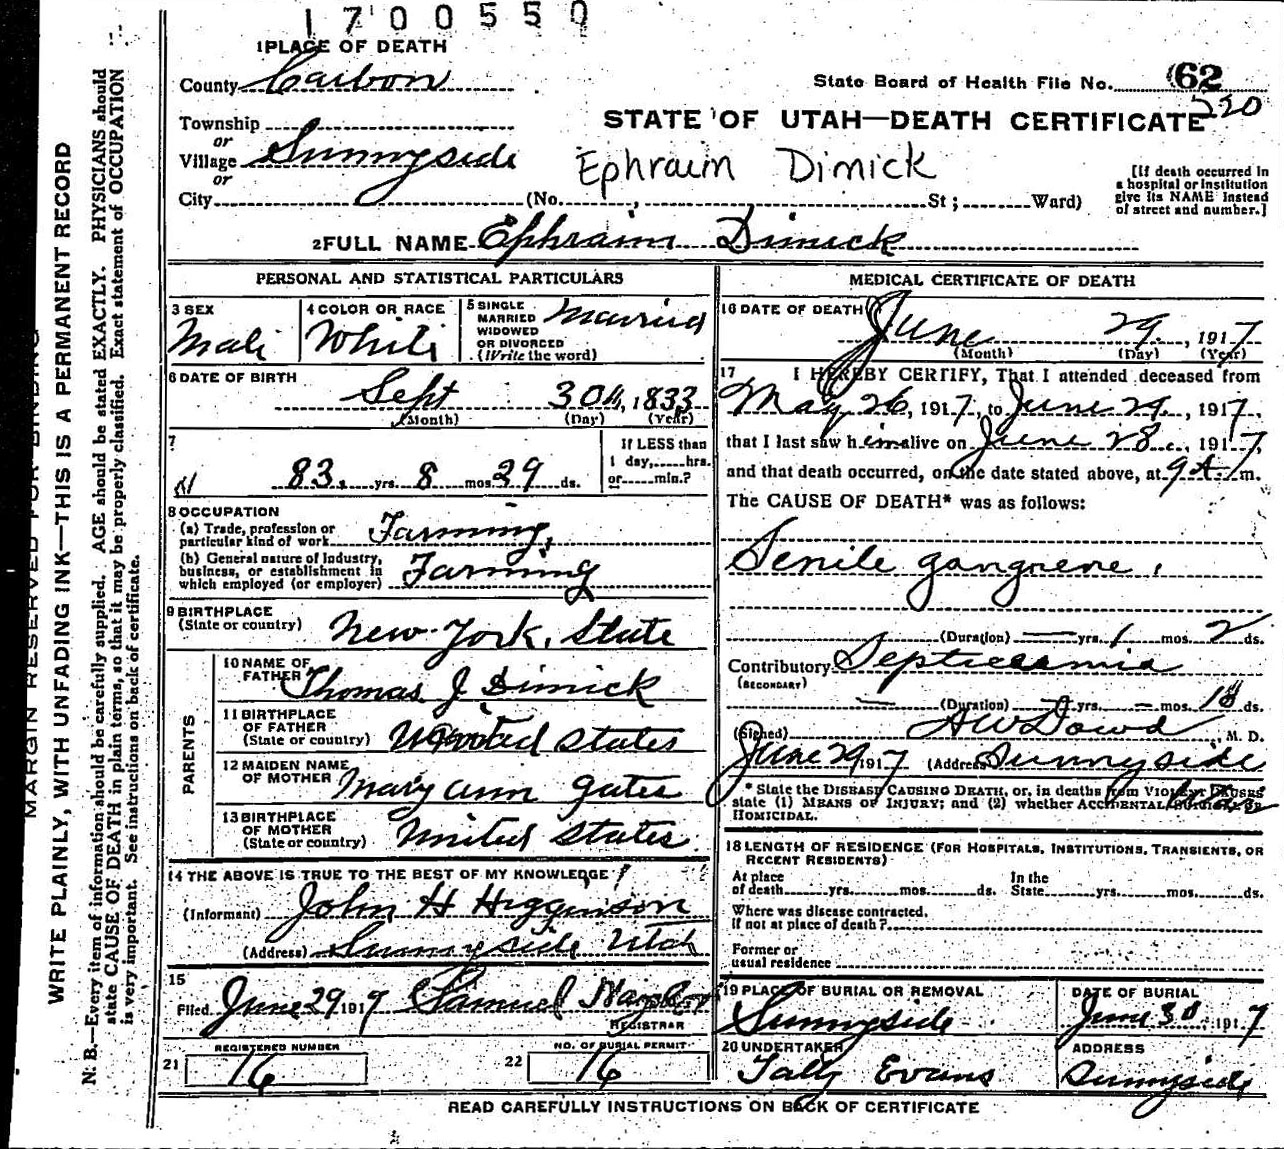 1700550
1 PLACE OF DEATH
County Carbon
State Board of Health File No. 62
220
Township
or
Village Sunnyside
or
City (No. , St; Ward)
STATE OF UTAH—DEATH CERTIFICATE
Ephraim Dimick
[If death occurred in
a hospital or institution
give its NAME instead
of street and number.]
2 FULL NAME Ephraim Dimick
PERSONAL AND STATISTICAL PARTICULARS
3 SEX
Male
4 COLOR OR RACE
White
5 SINGLE
MARRIED
WIDOWED
OR DIVORCED
(Write the word)
Married
6 DATE OF BIRTH
Sept 30th, 1833
(Month) (Day) (Year)
7
If LESS than
1 day, hrs.
or min.?
83 yrs 8 mos 29 ds.
8 OCCUPATION
(a) Trade, profession or
particular kind of work Farming,
(b) General nature of Industry,
business, or establishment in
which employed (or employer) Farming
9 BIRTHPLACE
(State or country) New York, State
PARENTS
10 NAME OF
FATHER Thomas J Dimick
11 BIRTHPLACE
OF FATHER
(State or country) United States
12 MAIDEN NAME
OF MOTHER Mary ann gates
13 BIRTHPLACE
OF MOTHER
(State or country) United States
14 THE ABOVE IS TRUE TO THE BEST OF MY KNOWLEDGE
(Informant) John H Higginson
(Address) Sunnyside Utah
15
Filed June 29 1917 Samuel
REGISTRAR
REGISTERED NUMBER
21 16
NO. OF BURIAL PERMIT
22 16
MEDICAL CERTIFICATE OF DEATH
16 DATE OF DEATH
June 29, 1917
(Month) (Day) (Year)
17 I HEREBY CERTIFY, That I attended deceased from
May 26, 1917, to June 29, 1917,
that I last saw him alive on June 28, 1917,
and that death occurred, on the date stated above, at 9 A. m.
The CAUSE OF DEATH* was as follows:
Senile gangrene,
(Duration) — yrs. 1 mos. 2 ds.
Contributory Septicaemia
(SECONDARY)
(Duration) — yrs. — mos. 10 ds.
(Signed) AW Dowd, M. D.
June 29 1917 (Address) Sunnyside
* State the DISEASE CAUSING DEATH, or, in deaths from VIOLENT CAUSES
state (1) MEANS OF INJURY; and (2) whether ACCIDENTAL, SUICIDAL OR
HOMICIDAL.
18 LENGTH OF RESIDENCE (FOR HOSPITALS, INSTITUTIONS, TRANSIENTS, OR
RECENT RESIDENTS)
At place
of death yrs. mos. ds.
In the
State yrs. mos. ds.
Where was disease contracted.
If not at place of death?
Former or
usual residence
19 PLACE OF BURIAL OR REMOVAL
Sunnyside
DATE OF BURIAL
June 30 1917
20 UNDERTAKER
Tally Evans
ADDRESS
Sunnyside
READ CAREFULLY INSTRUCTIONS ON BACK OF CERTIFICATE
MARGIN RESERVED FOR BINDING
WRITE PLAINLY, WITH UNFADING INK—THIS IS A PERMANENT RECORD
N. B.—Every item of information should be carefully supplied. AGE should be stated EXACTLY. PHYSICIANS should
state CAUSE OF DEATH in plain terms, so that it may be properly classified. Exact statement of OCCUPATION
is very important. See instructions on back of certificate.